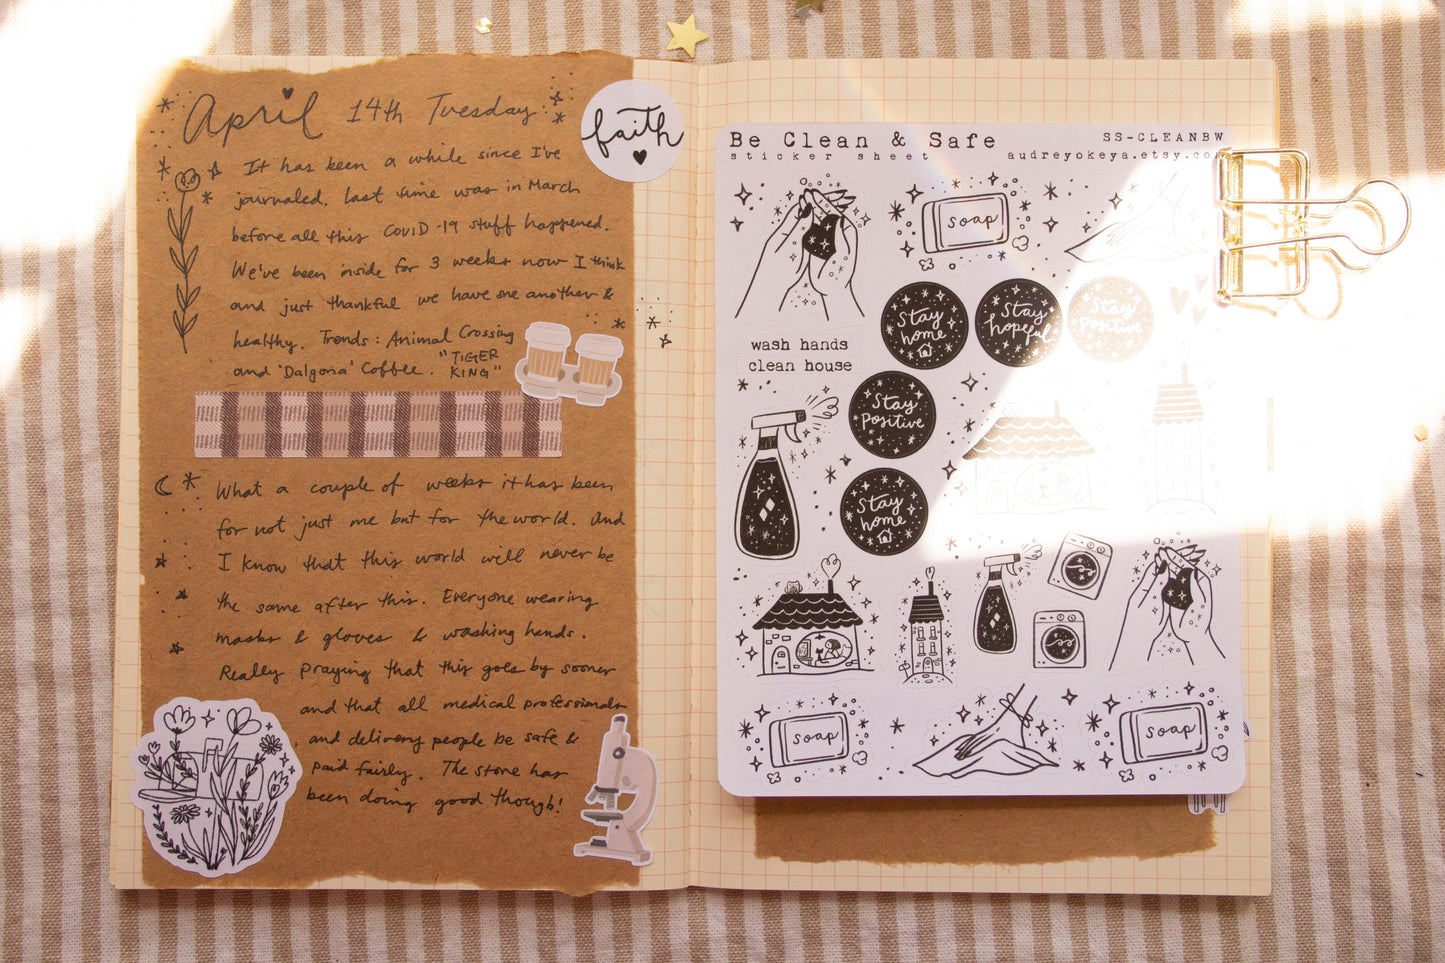 April 14th Tuesday
It has been a while since I've
journaled. Last time was in March
before all this COVID-19 stuff happened.
We've been inside for 3 weeks now I think
and just thankful we have one another &
healthy. Trends: Animal Crossing
and 'Dalgona' Coffee. "TIGER
KING"
What a couple of weeks it has been
for not just me but for the world. And
I know that this world will never be
the same after this. Everyone wearing
masks & gloves & washing hands.
Really praying that this goes by sooner
and that all medical professionals
and delivery people be safe &
paid fairly. The store has
been doing good though!
faith
Be Clean & Safe
SS-CLEANBW
sticker sheet
audreyokeya.etsy.com
soap
wash hands
clean house
Stay
home
Stay
hopeful
Stay
Positive
Stay
Positive
Stay
home
soap
soap